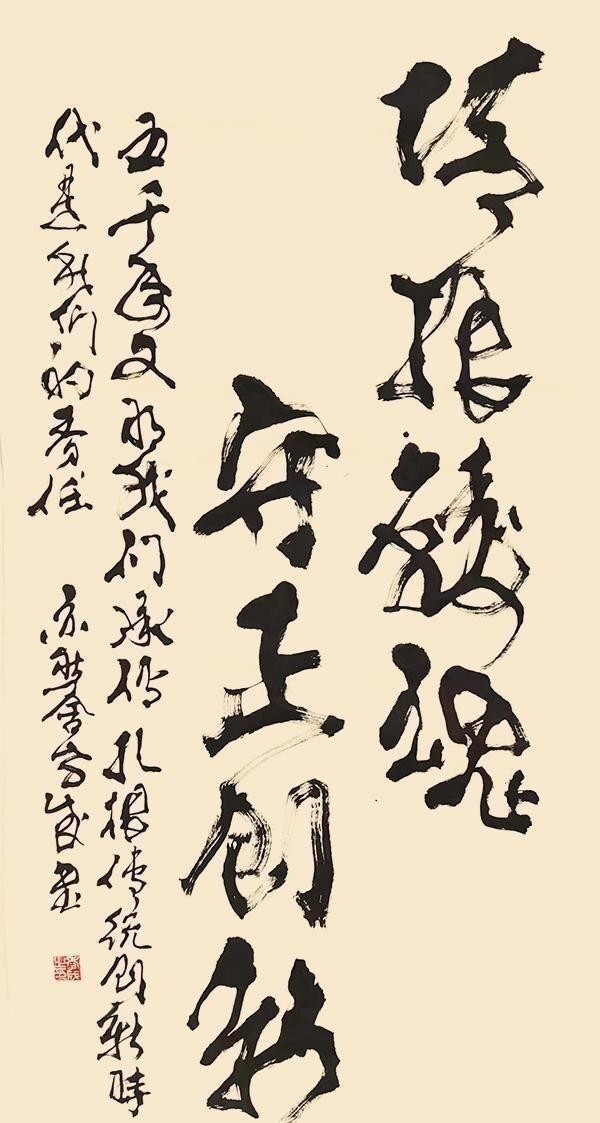 培根铸魂
守正创新
五千年文明我们承传扎根傳统创新時
代是我们的责任